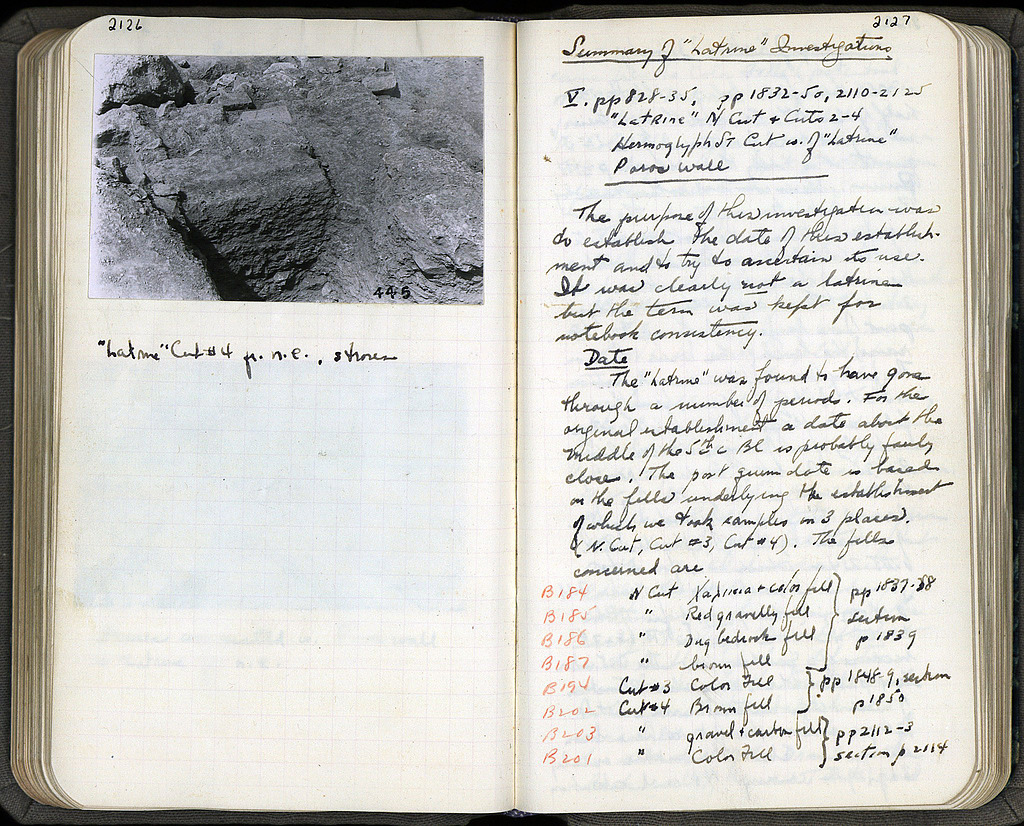 2126
445
"Latrine" Cut #4 fr. n.e., stroses
2127
Summary of "Latrine" Investigations
V. pp 828-35, pp 1832-50, 2110-2125
"Latrine" N Cut + Cuts 2-4
Hermoglyph St Cut w. of "Latrine"
Poros wall
The purpose of this investigation was
to establish the date of this establish-
ment and to try to ascertain its use.
It was clearly not a latrine
but the term was kept for
notebook consistency.
Date
The "Latrine" was found to have gone
through a number of periods. For the
original establishment a date about the
middle of the 5th c BC is probably fairly
close. The post quem date is based
on the fills underlying the establishment
of which we took samples in 3 places.
(N. Cut, Cut #3, Cut #4). The fills
concerned are
B184 N Cut + color fill pp 1837-38
B185 " Red gravelly fill section
B186 " Dug bedrock fill p 1839
B187 " brown fill
B194 Cut #3 Color Fill pp 1848-9, section
B202 Cut #4 Brown fill p 1850
B203 " gravel + carbon fill pp 2112-3
B201 " Color Fill section p 2114